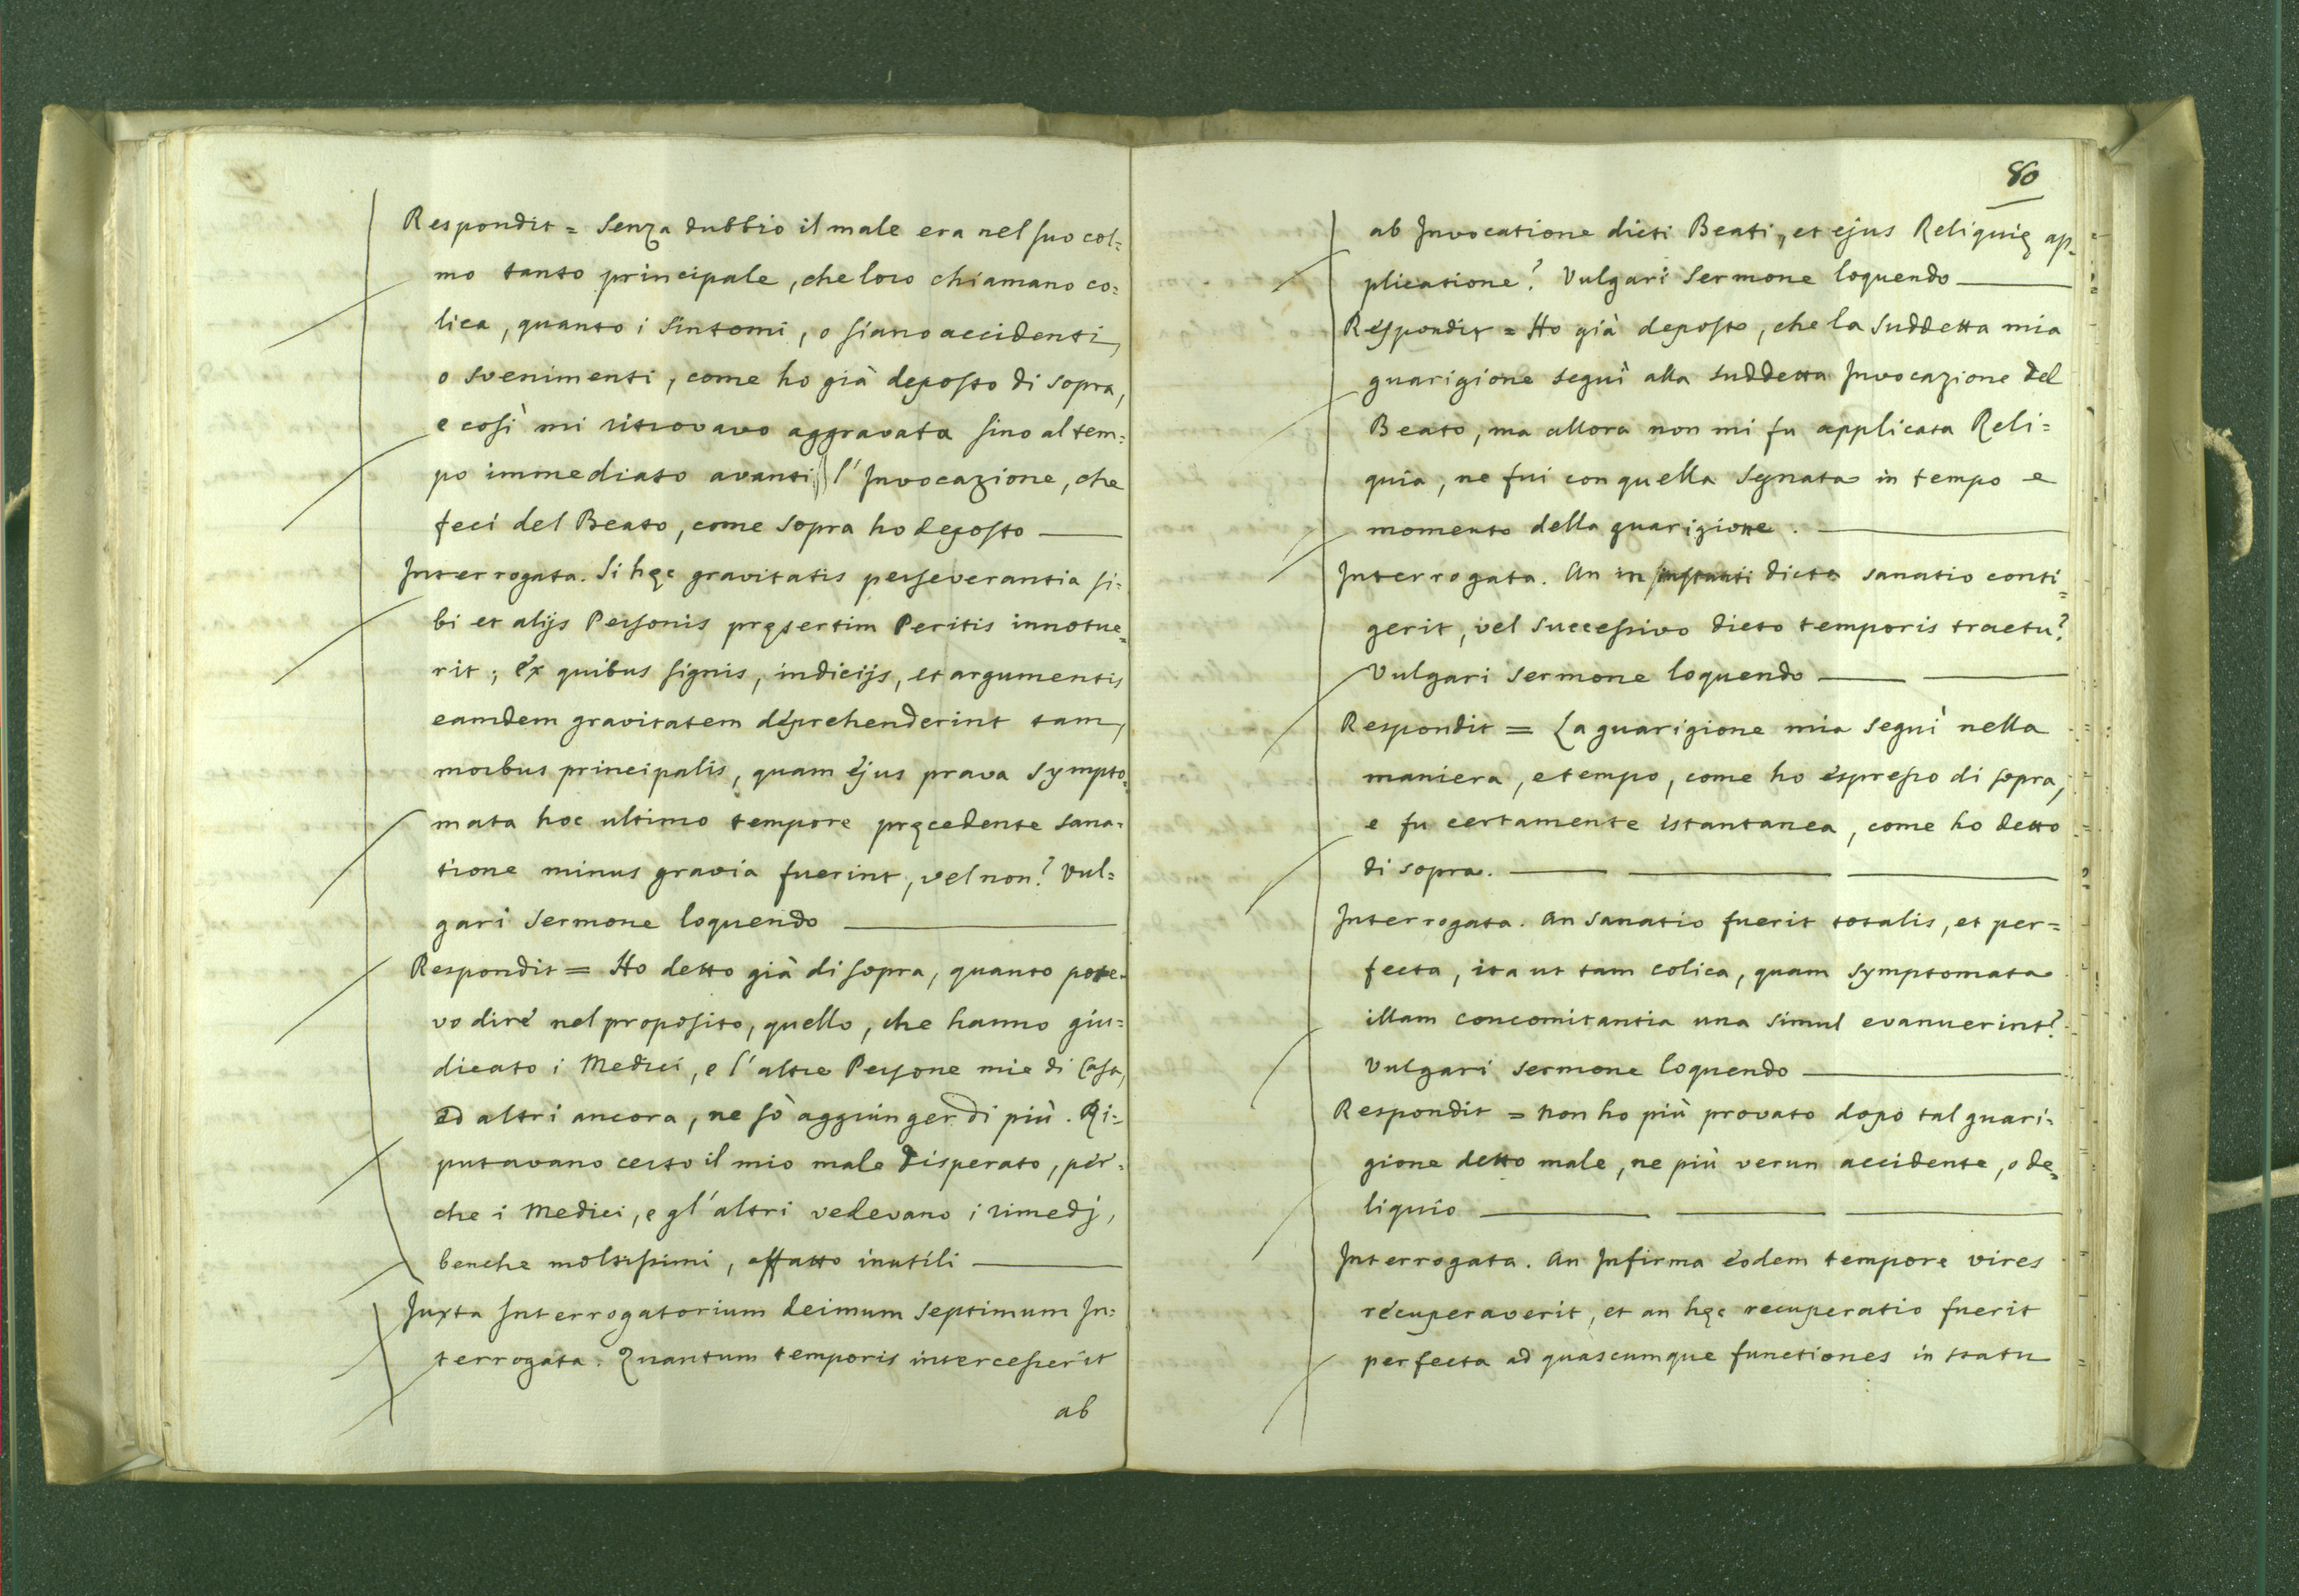 Respondit = Senza dubbio il male era nel suo col=
mo tanto principale, che loro chiamano co=
lica, quanto i Sintomi, o siano accidenti,
o svenimenti, come ho già deposto di sopra,
e così mi ritrovavo aggravata sino al tem=
po immediato avanti l'Invocazione, che
feci del Beato, come sopra ho deposto
Interrogata. Si hęc gravitatis perseverantia si=
bi et alijs Personis pręsertim Peritis innotue=
rit; ex quibus signis, indicijs, et argumentis
eamdem gravitatem deprehenderint tam,
morbus principalis, quam ejus prava Sympto=
mata hoc ultimo tempore pręcedente sana=
tione minus gravia fuerint, vel non? Vul=
gari Sermone loquendo
Respondit = Ho detto già di sopra, quanto pote=
vo dire nel proposito, quello, che hanno giu=
dicato i Medici, e l'altre Persone mie di Casa,
ed altri ancora, ne sò aggiunger di più. Ri=
putavano certo il mio male disperato, per=
che i Medici, e gl'altri vedevano i rimedj,
benche moltissimi, affatto inutili
Juxta Interrogatorium deimum septimum In=
terrogata. Quantum temporis intercesserit
ab
80
ab Invocatione dicti Beati, et ejus Reliquię ap=
plicatione? Vulgari Sermone loquendo
Respondit = Ho già deposto, che la suddetta mia
guarigione seguì alla suddetta Invocazione del
Beato, ma allora non mi fu applicata Reli=
quia, ne fui con quella Segnata in tempo e
momento della guarigione.
Interrogata. An in instanti dicta sanatio conti=
gerit, vel successivo dicto temporis tractu?
Vulgari Sermone loquendo
Respondit = La guarigione mia seguì nella
maniera, e tempo, come ho espresso di sopra,
e fu certamente istantanea, come ho detto
di sopra.
Interrogata. An Sanatio fuerit totalis, et per=
fecta, ita ut tam colica, quam symptomata
illam concomitantia una simul evanuerint?
Vulgari sermone loquendo
Respondit = Non ho più provato dopo tal guari=
gione detto male, ne più verun accidente, o de=
liquio
Interrogata. An Infirma eodem tempore vires
recuperaverit, et an hęc recuperatio fuerit
perfecta ad quascumque functiones in statu